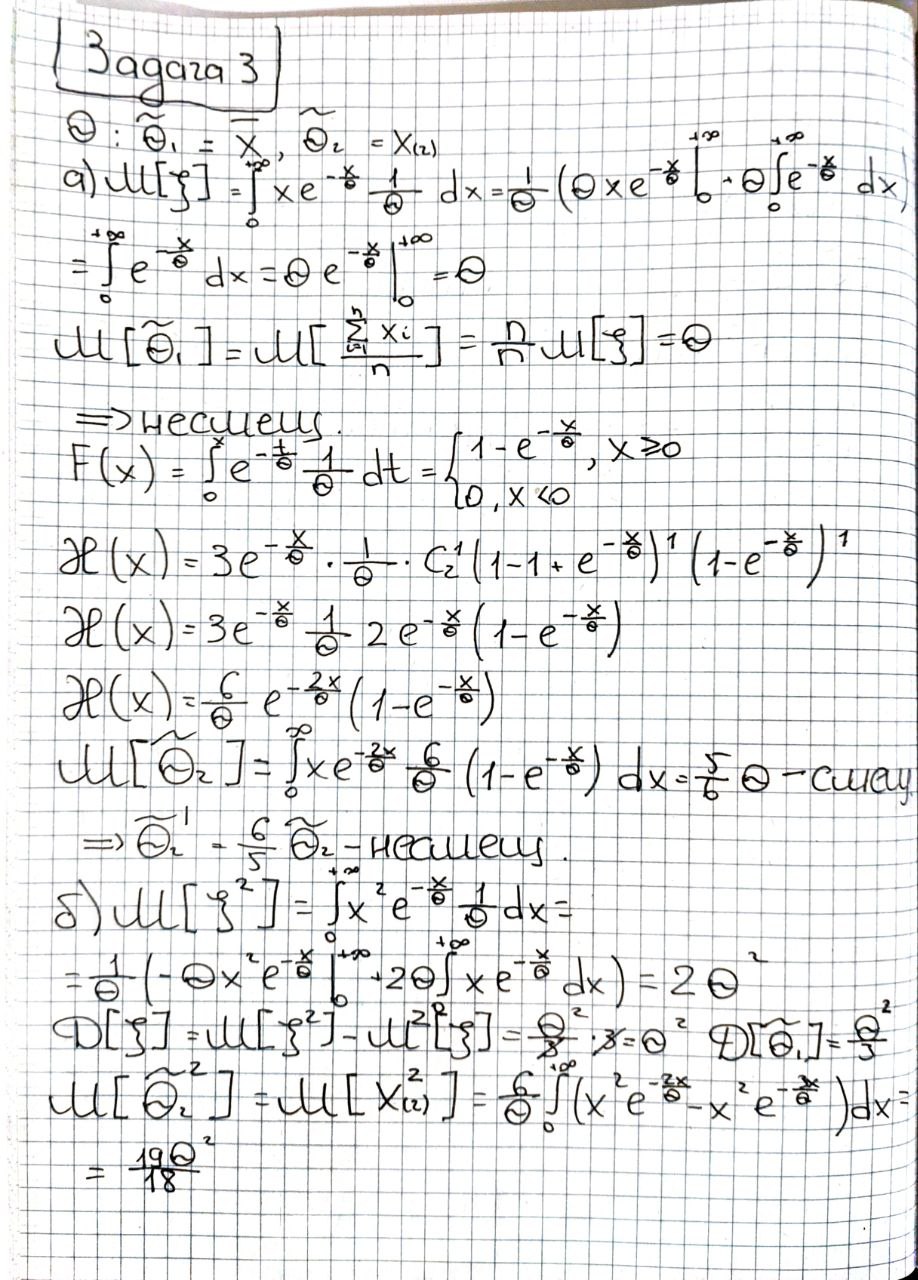 Задача 3
Θ : Θ̃₁ = x̄, Θ̃₂ = x₍₂₎
а) M[ξ] = ∫₀^{+∞} x e^{-x/Θ} 1/Θ dx = 1/Θ (Θ x e^{-x/Θ} |₀^{+∞} + Θ ∫₀^{+∞} e^{-x/Θ} dx)
= ∫₀^{+∞} e^{-x/Θ} dx = Θ e^{-x/Θ} |₀^{+∞} = Θ
M[Θ̃₁] = M[∑ᵢ₌₁ⁿ xᵢ / n] = n/n M[ξ] = Θ
=> несмещ.
F(x) = ∫₀ˣ e^{-t/Θ} 1/Θ dt = { 1 - e^{-x/Θ}, x ≥ 0
0, x < 0
ℋ(x) = 3e^{-x/Θ} · 1/Θ · C₂¹ (1 - 1 + e^{-x/Θ})¹ (1 - e^{-x/Θ})¹
ℋ(x) = 3e^{-x/Θ} 1/Θ 2e^{-x/Θ} (1 - e^{-x/Θ})
ℋ(x) = 6/Θ e^{-2x/Θ} (1 - e^{-x/Θ})
M[Θ̃₂] = ∫₀^∞ x e^{-2x/Θ} 6/Θ (1 - e^{-x/Θ}) dx = 5/6 Θ - смещ
=> Θ̃₂¹ = 6/5 Θ̃₂ - несмещ.
б) M[ξ²] = ∫₀^{+∞} x² e^{-x/Θ} 1/Θ dx =
= 1/Θ (-Θx² e^{-x/Θ} |₀^{+∞} + 2Θ ∫₀^{+∞} x e^{-x/Θ} dx) = 2Θ²
D[ξ] = M[ξ²] - M²[ξ] = Θ²/3 · 3 = Θ² D[Θ̃₁] = Θ²/3
M[Θ̃₂²] = M[x²₍₂₎] = 6/Θ ∫₀^{+∞} (x² e^{-2x/Θ} - x² e^{-3x/Θ}) dx =
= 19Θ²/18